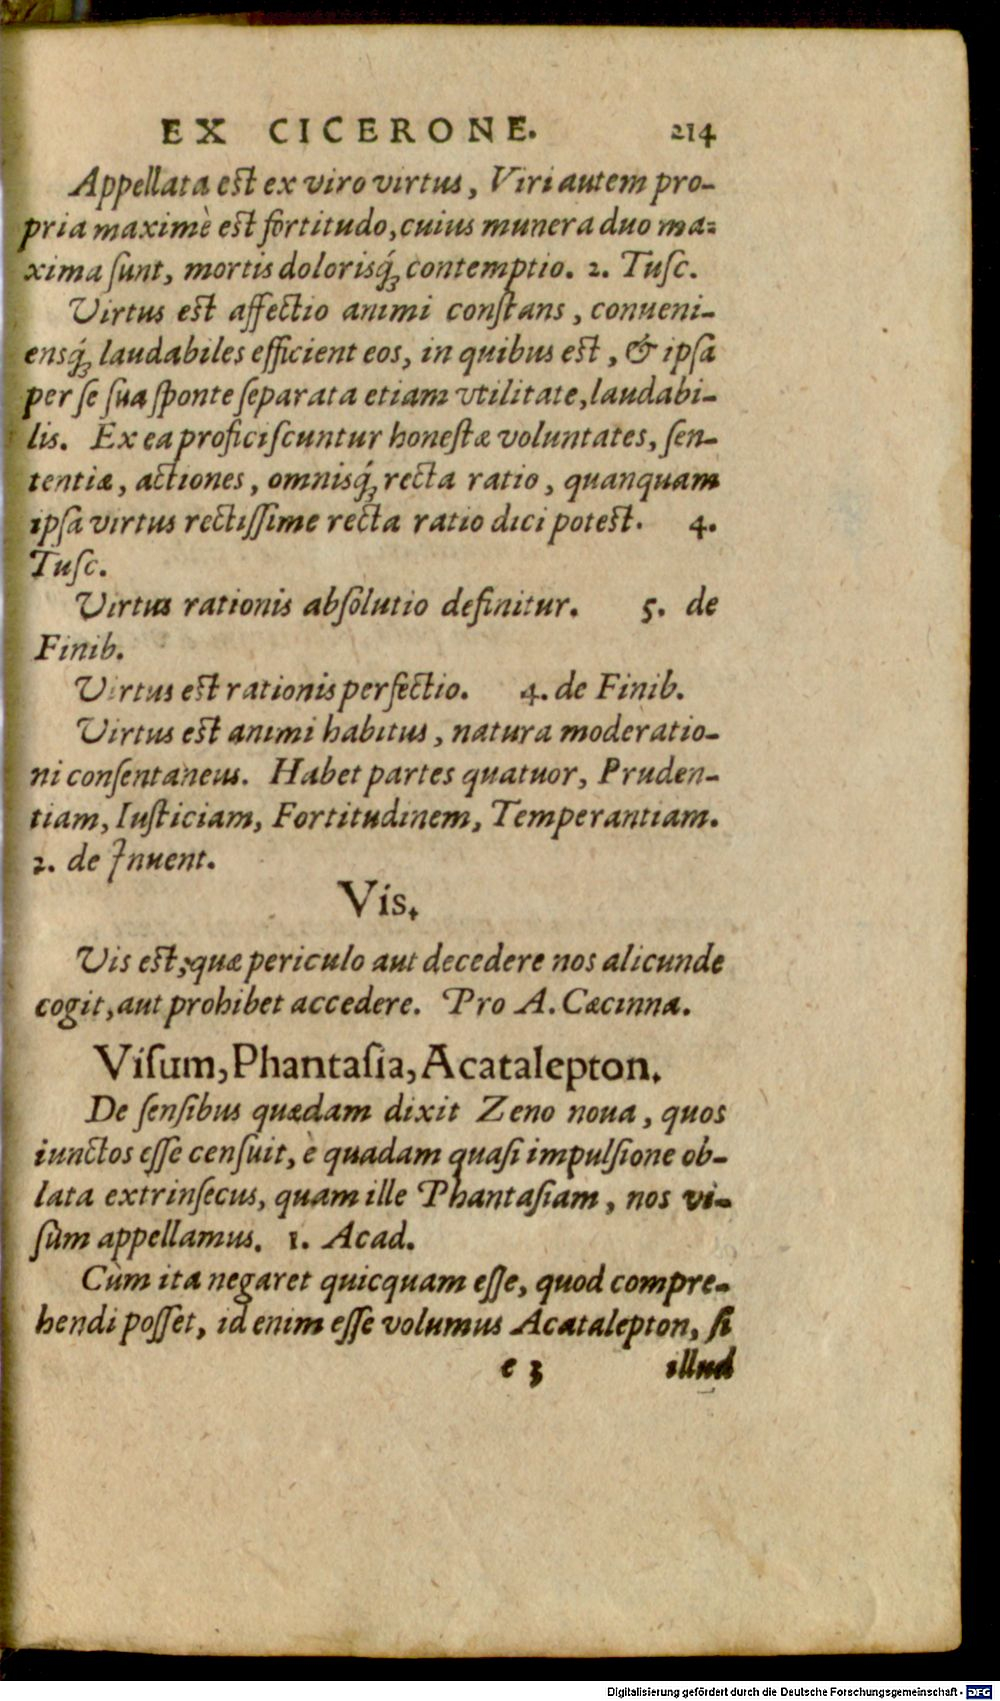 EX CICERONE. 214
Appellata est ex viro virtus, Viri autem pro-
pria maximè est fortitudo, cuius munera duo ma-
xima sunt, mortis dolorisq́ꝫ contemptio. 2. Tusc.
Virtus est affectio animi constans, conueni-
ensq́ꝫ laudabiles efficient eos, in quibus est, & ipsa
per se sua sponte separata etiam vtilitate, laudabi-
lis. Ex ea proficiscuntur honestæ voluntates, sen-
tentiæ, actiones, omnisq́ꝫ recta ratio, quanquam
ipsa virtus rectissime recta ratio dici potest. 4.
Tusc.
Virtus rationis absolutio definitur. 5. de
Finib.
Virtus est rationis perfectio. 4. de Finib.
Virtus est animi habitus, natura moderatio-
ni consentaneus. Habet partes quatuor, Pruden-
tiam, Iusticiam, Fortitudinem, Temperantiam.
2. de Inuent.
Vis.
Vis est, quæ periculo aut decedere nos alicunde
cogit, aut prohibet accedere. Pro A. Cæcinna.
Visum, Phantasia, Acatalepton.
De sensibus quædam dixit Zeno noua, quos
iunctos esse censuit, è quadam quasi impulsione ob-
lata extrinsecus, quam ille Phantasiam, nos vi-
sùm appellamus. 1. Acad.
Cùm ita negaret quicquam esse, quod compre-
hendi posset, id enim esse volumus Acatalepton, si
e 3 illud
Digitalisierung gefördert durch die Deutsche Forschungsgemeinschaft - DFG